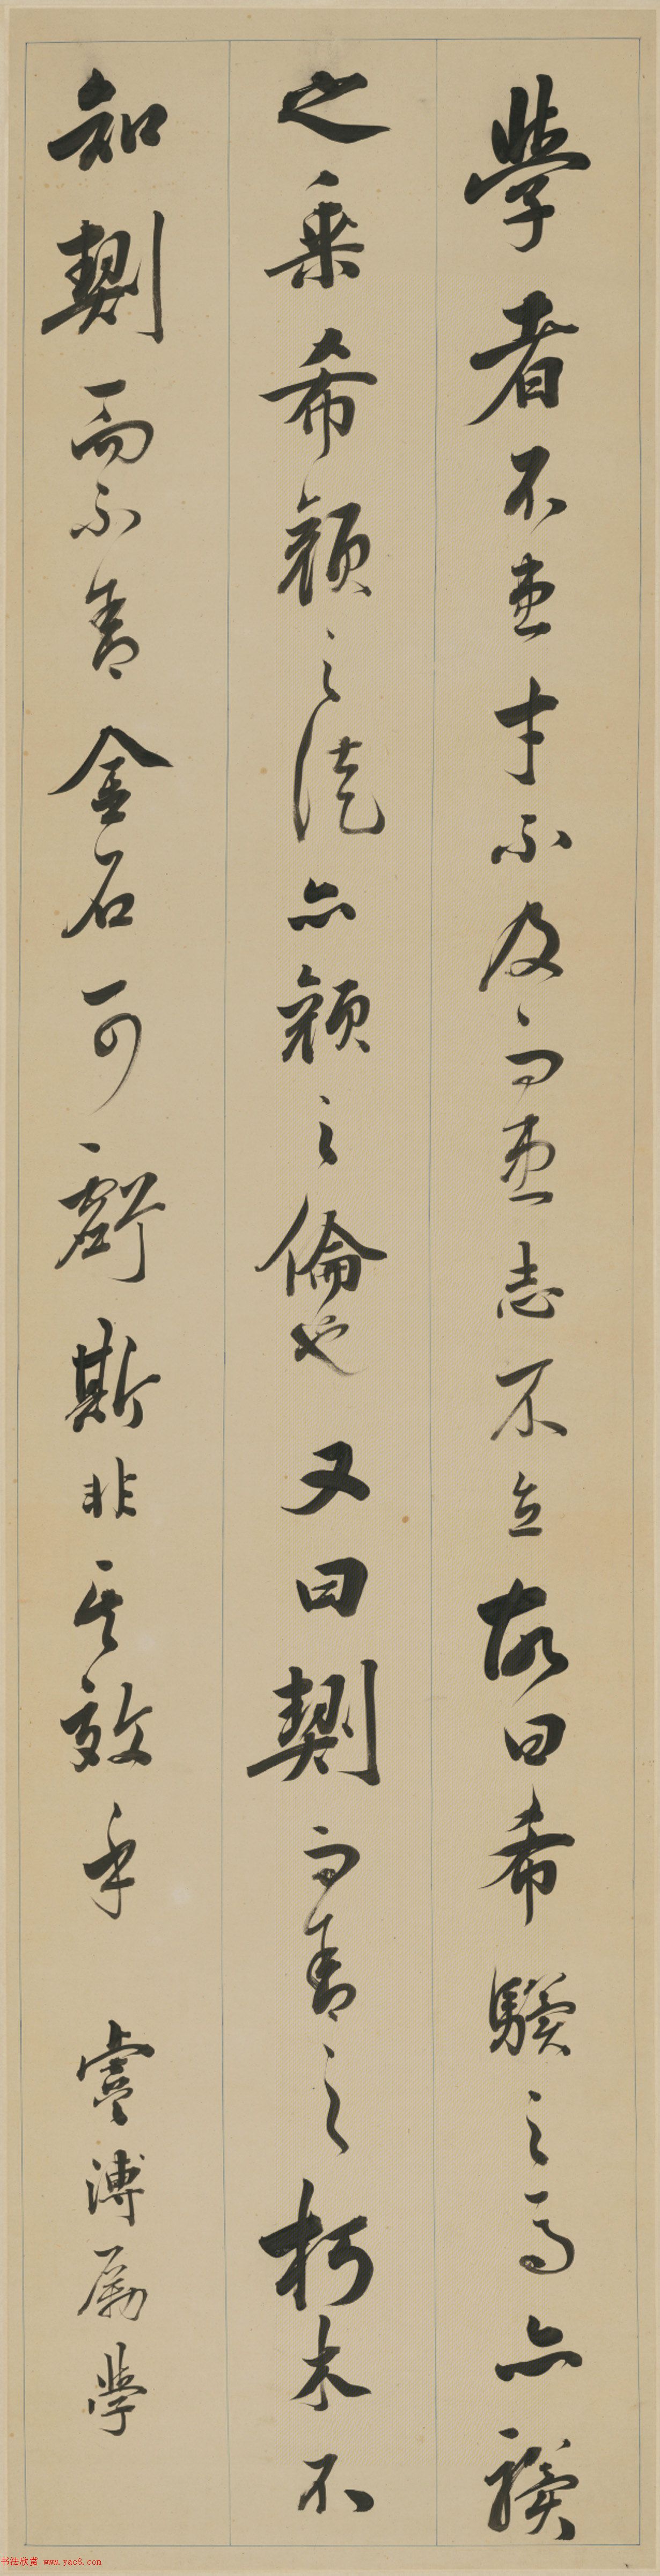 學者不患才不及而患志不立故曰希驥之馬亦驥
之乘希顏之徒亦顏之倫也又曰㓶而舍之朽木不
知㓶而不舍金石可虧斯非其效乎 虞溥厲學
书法欣赏 www.yac8.com